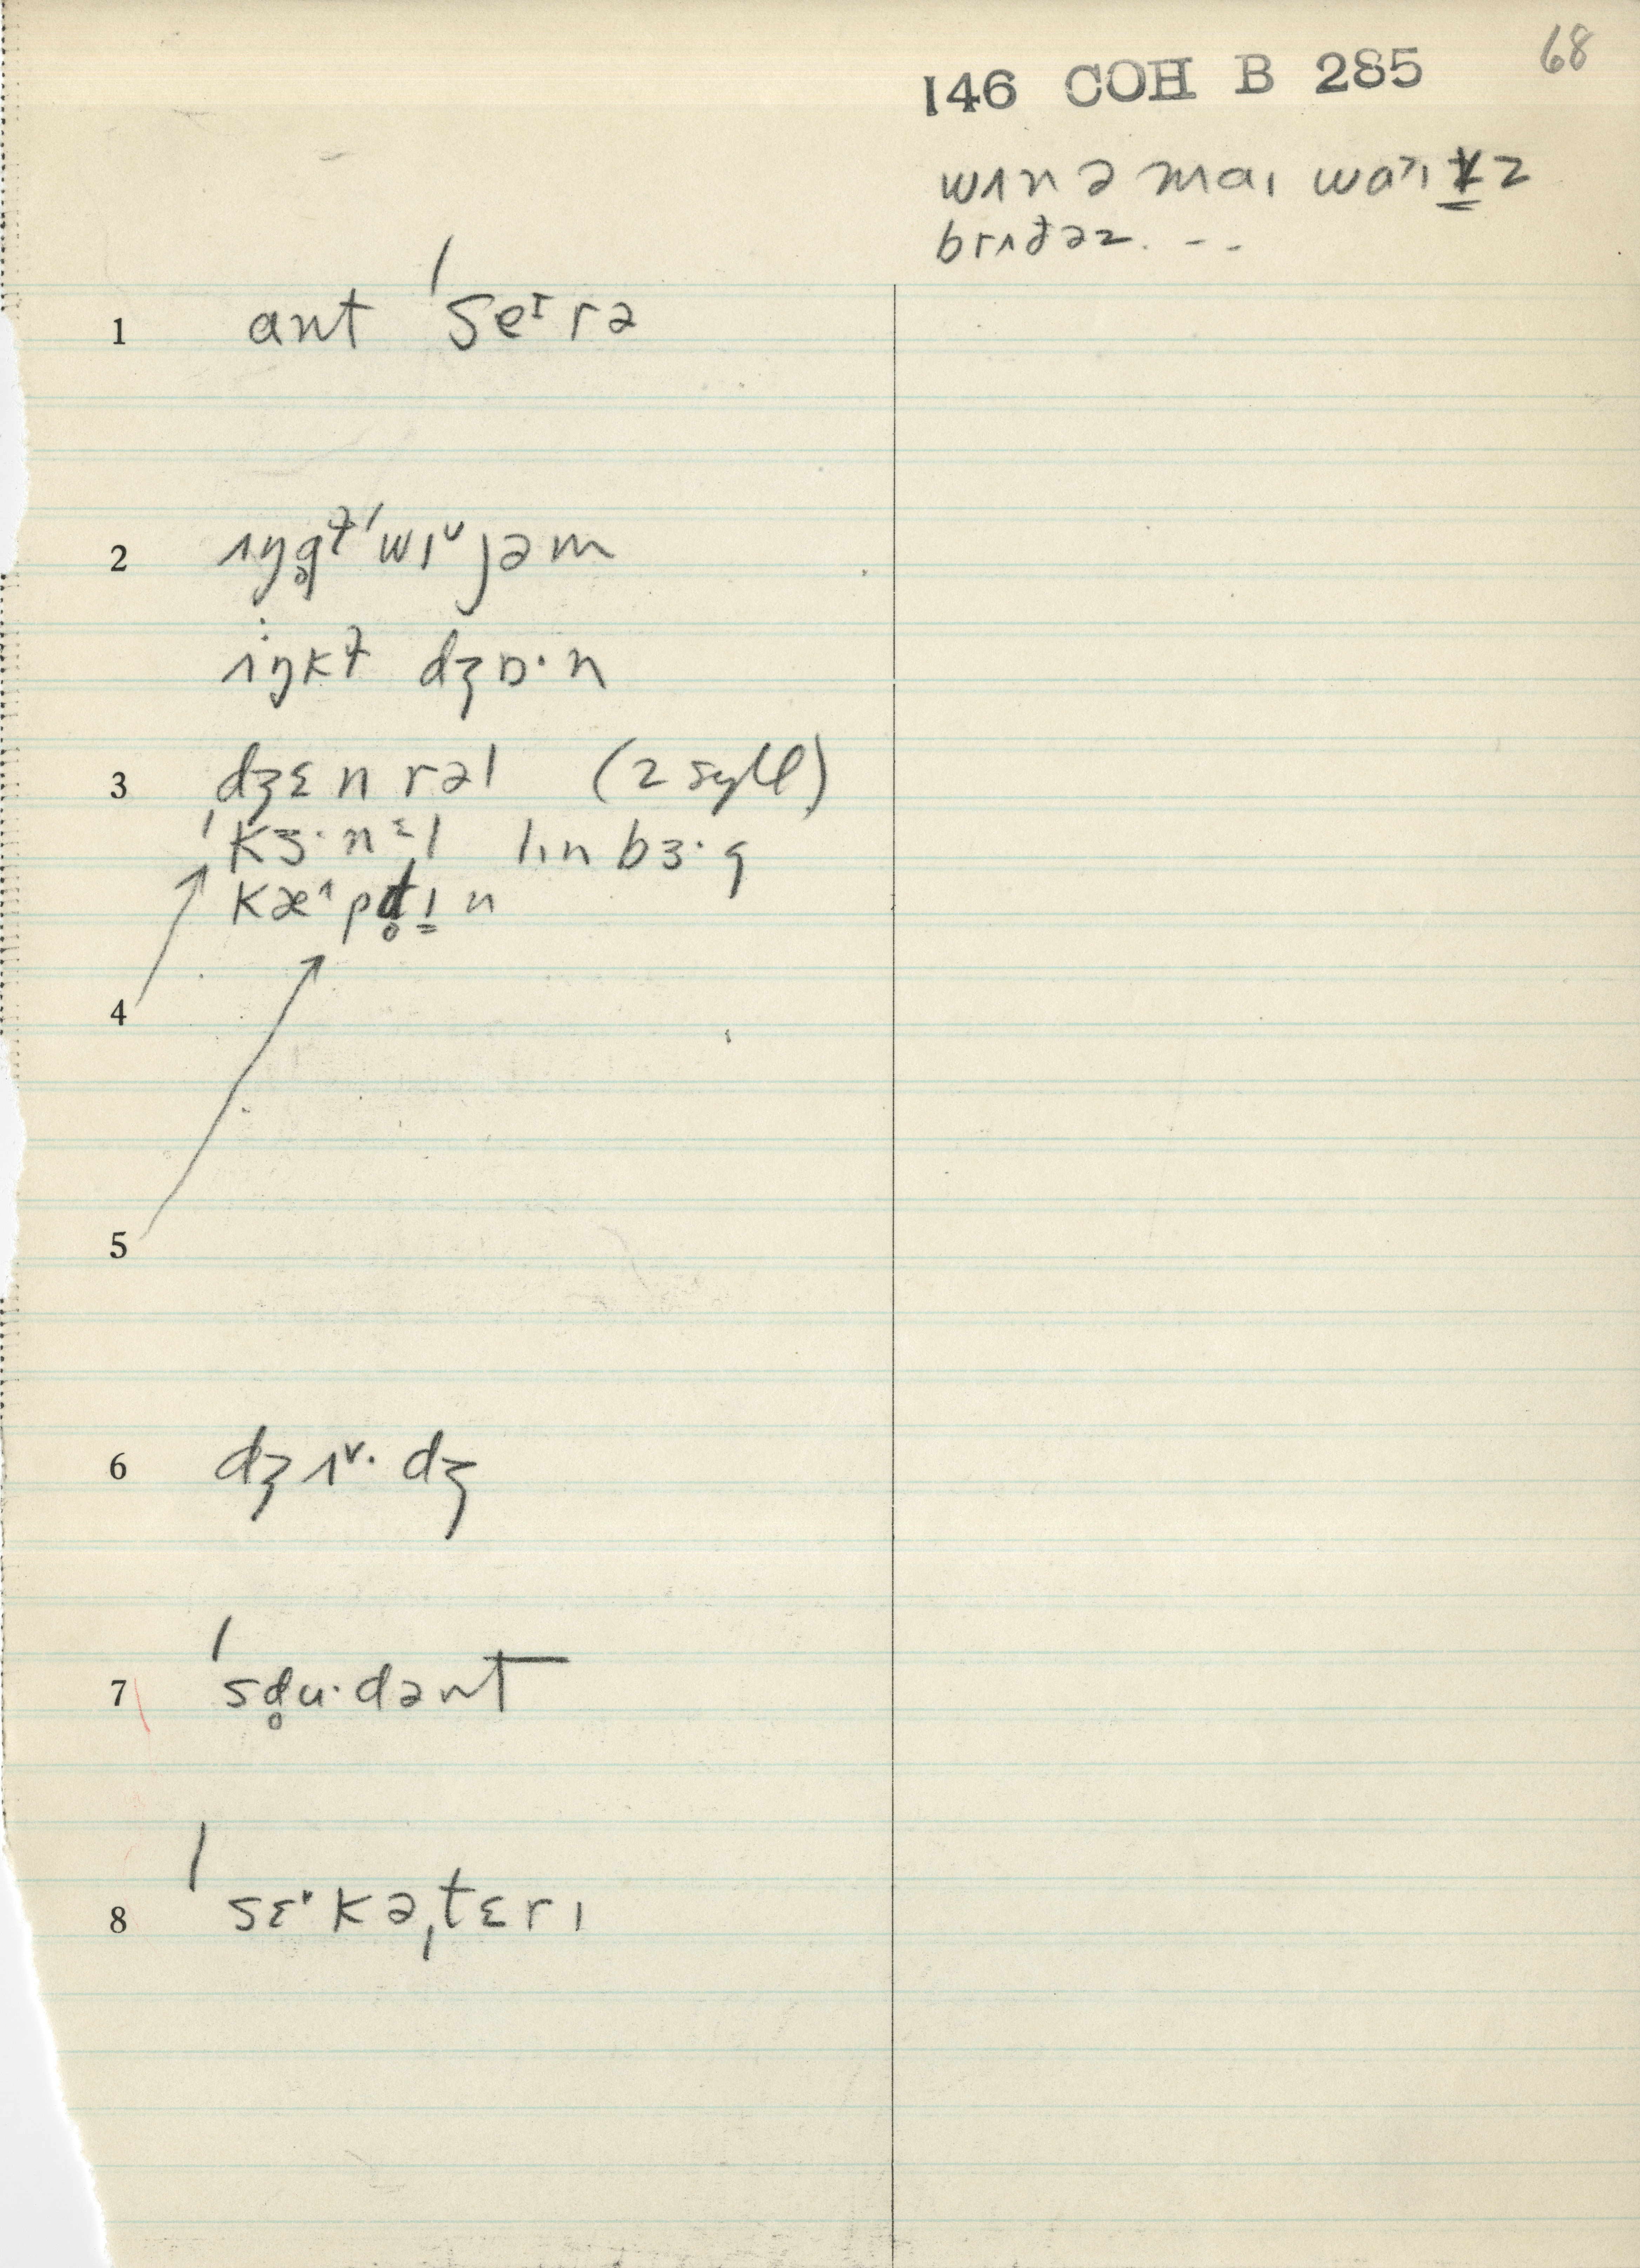 68
146 COH B 285
wɪn ə maɪ waᶾɪvz
brɪðəz. --
1 ant ˈseᶦrə
2 ɪŋg̥ɫ ˈwɪᵛjəm
ɪŋkɫ dʒɒ·n
3 dʒɛnrəl (2 syll)
ˈkɜ·nᵋl lɪnbɜ·g
kæˆpd̥ɪn
4
5
6 dʒɪᵛ·dʒ
7 ˈsd̥u·dənt
8 ˈsɛ˅kəˌtɛrɪ